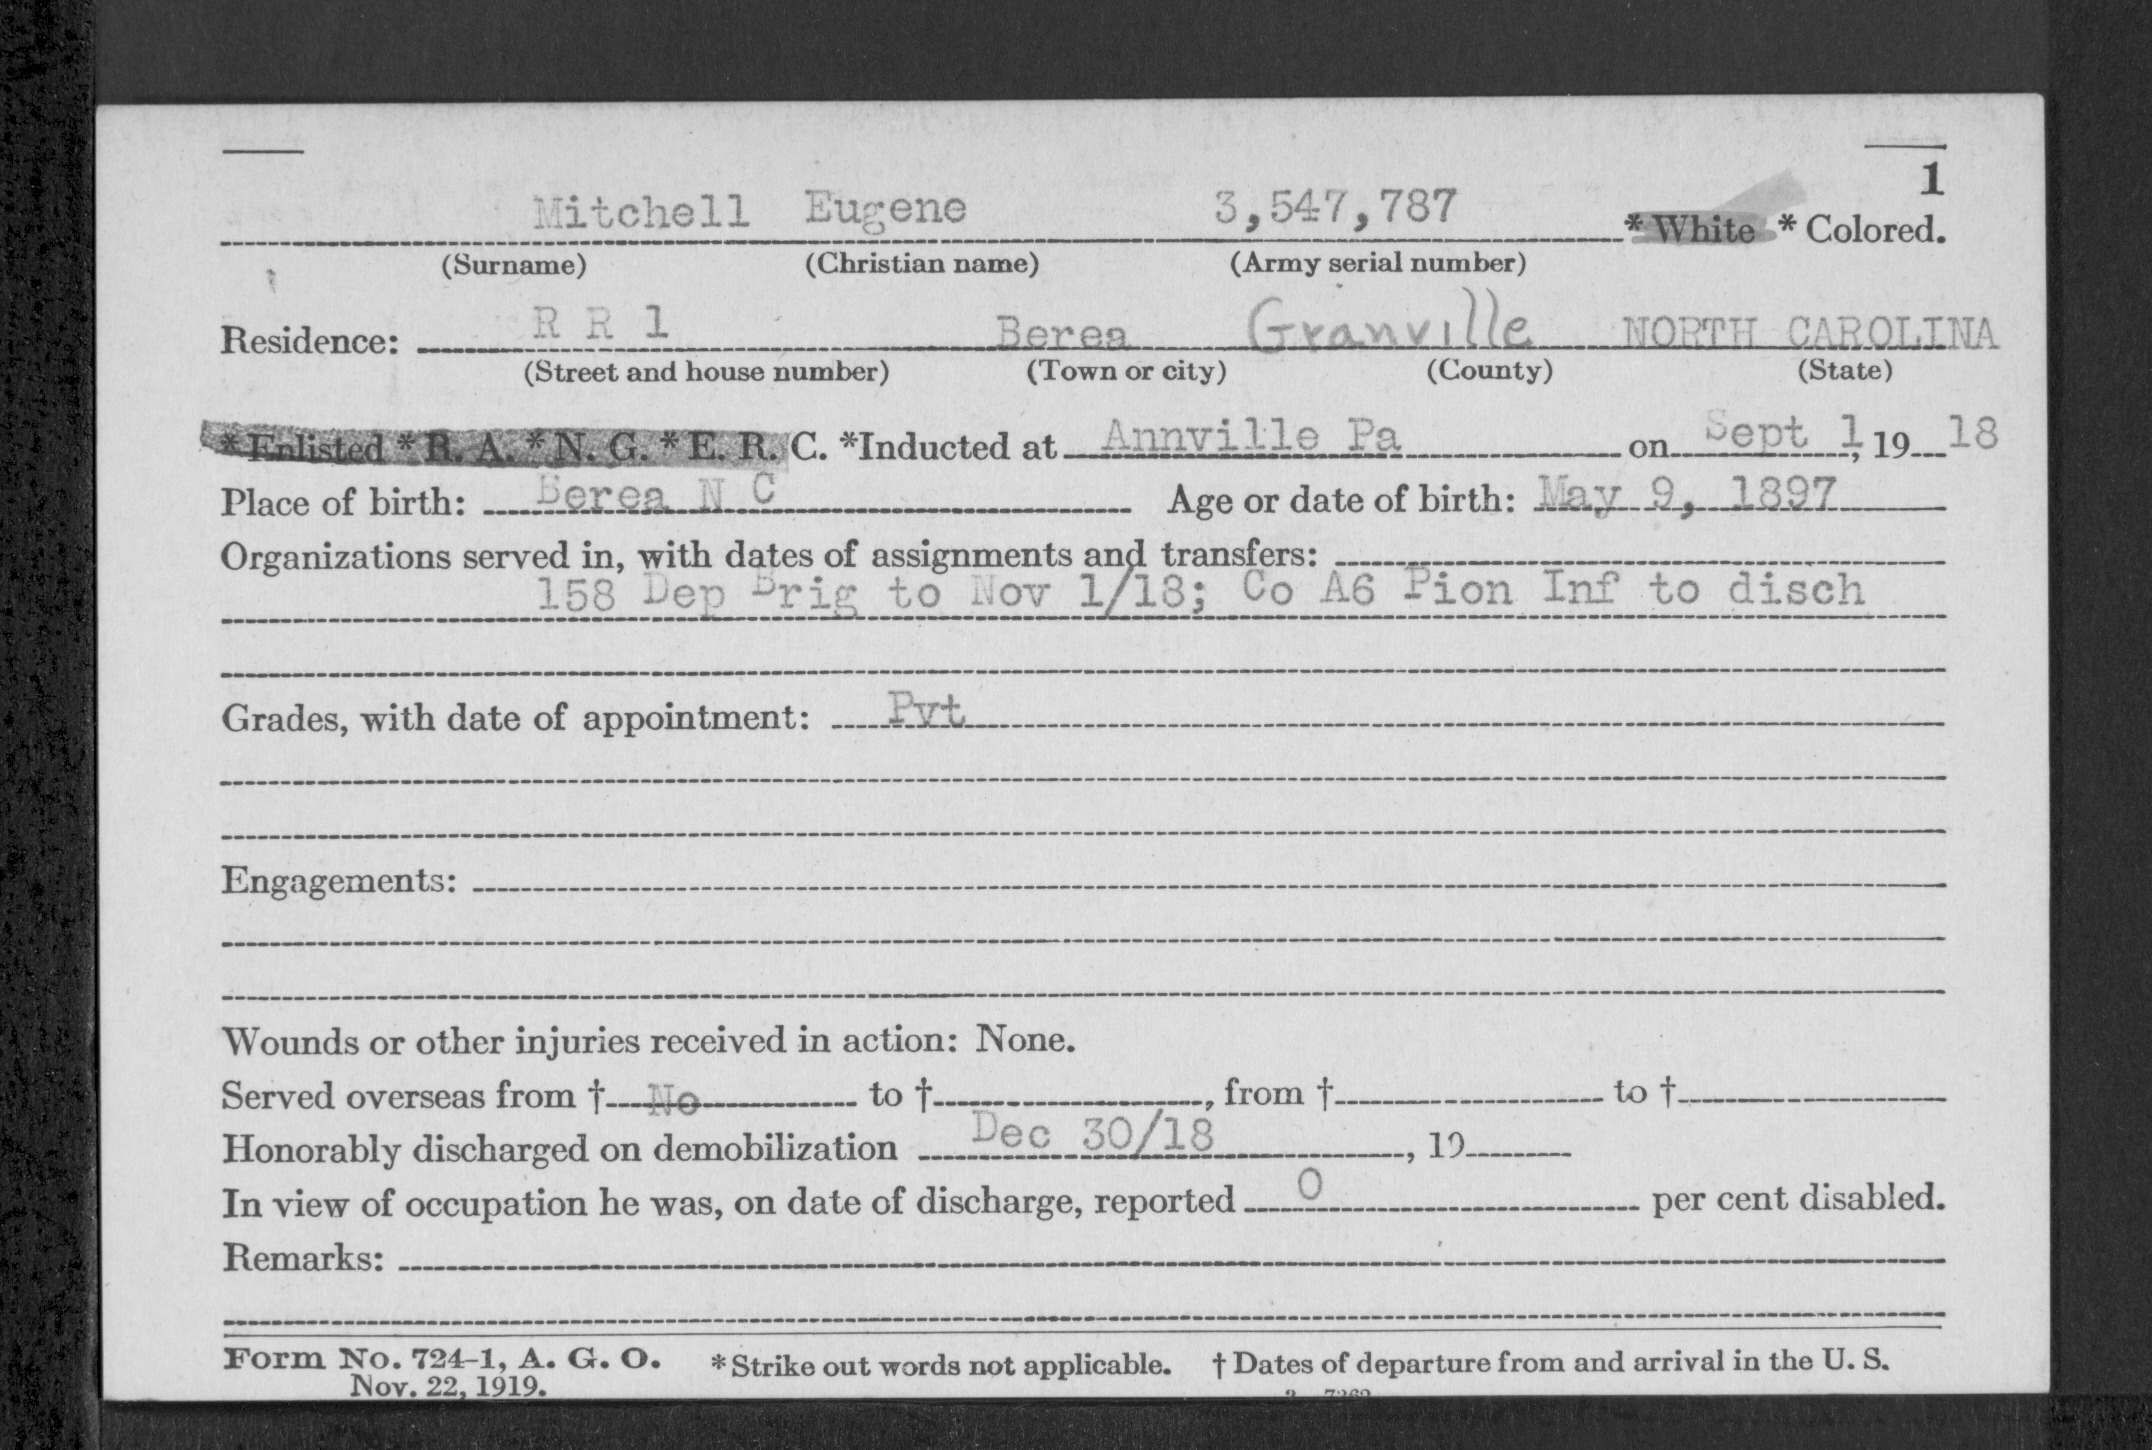 1
Mitchell Eugene 3,547,787 * White * Colored.
(Surname) (Christian name) (Army serial number)
Residence: R R 1 Berea Granville NORTH CAROLINA
(Street and house number) (Town or city) (County) (State)
* Enlisted * R. A. * N. G. * E. R. C. *Inducted at Annville Pa on Sept 1, 19 18
Place of birth: Berea N C Age or date of birth: May 9, 1897
Organizations served in, with dates of assignments and transfers:
158 Dep Brig to Nov 1/18; Co A6 Pion Inf to disch
Grades, with date of appointment: Pvt
Engagements:
Wounds or other injuries received in action: None.
Served overseas from † No to †, from † to †
Honorably discharged on demobilization Dec 30/18, 19
In view of occupation he was, on date of discharge, reported 0 per cent disabled.
Remarks:
Form No. 724-1, A. G. O. * Strike out words not applicable. † Dates of departure from and arrival in the U. S.
Nov. 22, 1919.